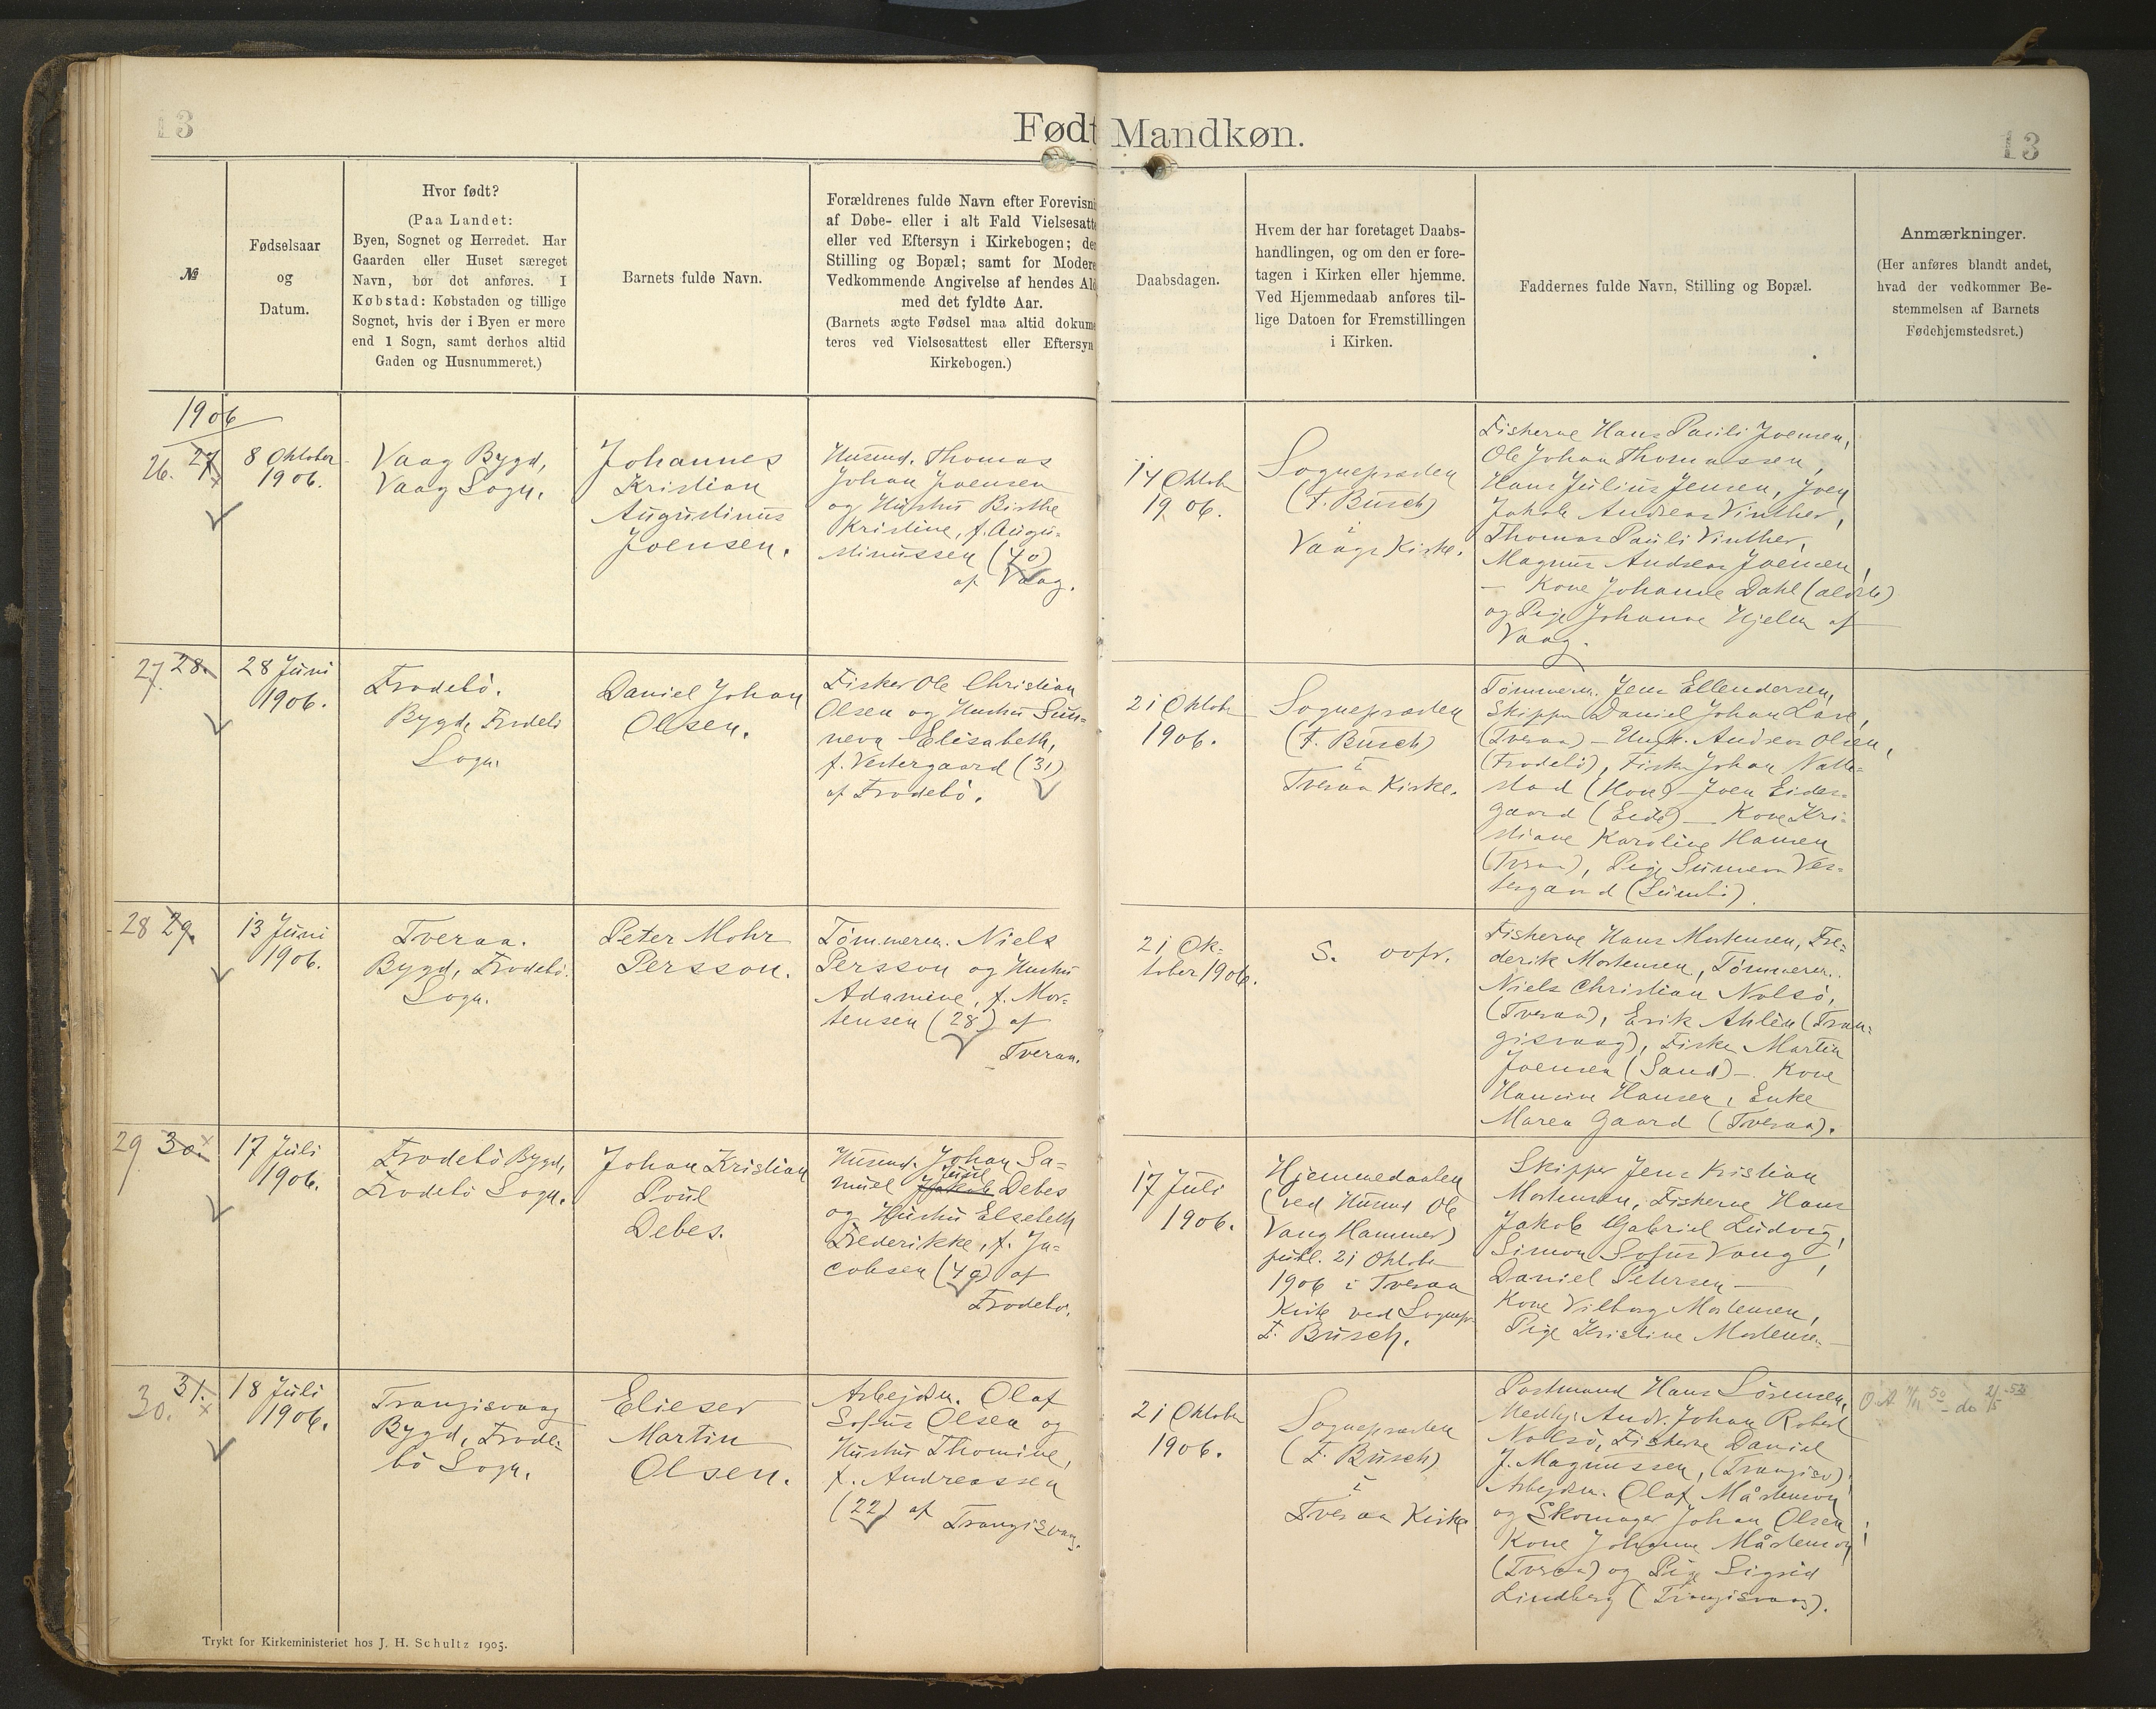 13
Født Mandkøn.
13
№
Fødselsaar
og
Datum.
Hvor født?
(Paa Landet:
Byen, Sognet og Herredet. Har
Gaarden eller Huset særeget
Navn, bør det anføres. I
Købstad: Købstaden og tillige
Sognet, hvis der i Byen er mere
end 1 Sogn, samt derhos altid
Gaden og Husnummeret.)
Barnets fulde Navn.
Forældrenes fulde Navn efter Forevisni
af Døbe- eller i alt Fald Vielsesatte
eller ved Eftersyn i Kirkebogen; der
Stilling og Bopæl; samt for Modere
Vedkommende Angivelse af hendes Ald
med det fyldte Aar.
(Barnets ægte Fødsel maa altid dokume
teres ved Vielsesattest eller Eftersyn
Kirkebogen.)
Daabsdagen.
Hvem der har foretaget Daabs-
handlingen, og om den er fore-
tagen i Kirken eller hjemme.
Ved Hjemmedaab anføres til-
lige Datoen for Fremstillingen
i Kirken.
Faddernes fulde Navn, Stilling og Bopæl.
Anmærkninger.
(Her anføres blandt andet,
hvad der vedkommer Be-
stemmelsen af Barnets
Fødehjemstedsret.)
1906
26. 27
8 Oktober
1906.
Vaag Bygd,
Vaag Sogn.
Johannes
Kristian
Augustinus
Joensen.
Husmd. Thomas
Johan Joensen
og Hustru Birthe
Kristine, f. Augu-
stinussen (40)
af Vaag.
14 Oktobr
1906.
Sognepræsten
(F. Busch)
i
Vaags Kirke.
Fiskerne Hans Pauli Joensen,
Ole Johan Thomassen,
Hans Julius Jensen, Joen
Jakob Andreas Vinther,
Thomas Pauli Vinther,
Magnus Andreas Joensen,
— Kone Johanne Dahl (ældste)
og Pige Johanne Hjelm af
Vaag.
27. 28.
28 Juni
1906.
Frodebö.
Bygd, Frodebö
Sogn.
Daniel Johan
Olsen.
Fisker Ole Christian
Olsen og Hustru Sun-
neva Elisabeth,
f. Vestergaard (31)
af Frodebö.
21 Oktobr
1906.
Sognepræsten
(F. Busch)
i
Tveraa Kirke.
Tömmerm. Jens Ellendersen,
Skipper Daniel Johan
(Tveraa) — Ungk. Andreas Olsen,
(Frodebö), Fisker Johan Natte-
stad (Hove) — Joen Eides-
gaard (Eide) — Kone Kri-
stiane Karoline Hansen
(Tveraa), Pige Sunneva Ves-
tergaard (Sumbö).
28 29.
13 Juni
1906.
Tveraa.
Bygd, Frodebö.
Sogn.
Peter Mohr
Persson.
Tömmerm. Niels
Persson og Hustru
Adamine, f. Mor-
tensen (28) af
Tveraa.
21 Ok-
tober 1906.
S. ovfr.
Fiskerne Hans Mortensen, Fre-
derik Mortensen, Tömmerm.
Niels Christian Nolsö,
(Tveraa), Erik Ahlén (Tran-
gisvaag), Fisker Martin
Joensen (Sand) — Kone
Hansine Hansen, Enke
Maren Gaard (Tveraa).
29 30.
17 Juli
1906.
Frodebö Bygd,
Frodebö Sogn.
Johan Kristian
Poul
Debes.
Husmd. Johan Sa-
Juul
muel Jakob Debes
og Hustru Elsebeth
Frederikke, f. Ja-
cobsen (40) af
Frodebö.
17 Juli
1906.
Hjemmedöbt
(ved Husmd Ole
Vang Hammer)
publ. 21 Oktobr
1906 i Tveraa
Kirke ved Sognepr.
F. Busch.
Skipper Jens Kristian
Mortensen, Fiskerne Hans
Jakob Gabriel Ludvig,
Simon Sofus Vang,
Daniel Petersen —
Kone Vilborg Mortensen,
Pige Kristine Mortensen
30. 31.
18 Juli
1906.
Trangisvaag
Bygd, Frode-
bö Sogn.
Elieser
Martin
Olsen.
Arbejdsm. Olaf
Sofus Olsen og
Hustru Thomine,
f. Andreassen
(22) af Trangisvaag.
21 Oktobr
1906.
Sognepræsten
(F. Busch)
i
Tveraa Kirke
Postmand Hans Sörensen,
Medhj. Andr. Johan Robert
Nolsö, Fiskerne Daniel
J. Magnussen, (Trangisv),
Arbejdsm. Olaf Mårtenson
og Skomager Johan Olsen,
Kone Johanne Mårtenson
(Tveraa) og Pige Sigrid
Lindberg (Trangisvaag).
Trykt for Kirkeministeriet hos J. H. Schultz 1905.